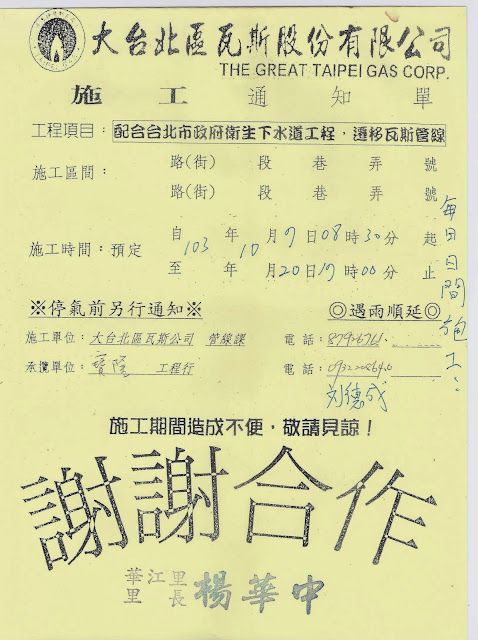 大台北區瓦斯股份有限公司
THE GREAT TAIPEI GAS CORP.
施工通知單
工程項目：配合台北市政府衛生下水道工程，遷移瓦斯管線
施工區間： 路(街) 段 巷 弄 號
路(街) 段 巷 弄 號
施工時間：預定 自 103 年 10 月 7 日 08 時 30 分 起
至 年 月 20 日 17 時 00 分 止
每日日間施工
※停氣前另行通知※ ◎遇雨順延◎
施工單位：大台北區瓦斯公司 管線課 電話：87926761
承攬單位： 工程行 電話：
施工期間造成不便，敬請見諒！
謝謝合作
華江里
里長 楊華中